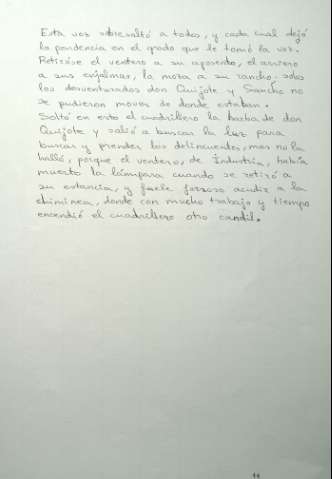 Esta voz sobresaltó a todos, y cada cual dejó
la pendencia en el grado que le tomó la voz.
Retiróse el ventero a su aposento, el arriero
a sus enjalmas, la moza a su rancho; solos
los desventurados don Quijote y Sancho no
se pudieron mover de donde estaban.
Soltó en esto el cuadrillero la barba de don
Quijote y salió a buscar la luz para
buscar y prender los delincuentes, mas no la
halló, porque el ventero, de Industria, había
muerto la lámpara cuando se retiró a
su estancia, y fuele forzoso acudir a la
chiminea, donde con mucho trabajo y tiempo
encendió el cuadrillero otro candil.